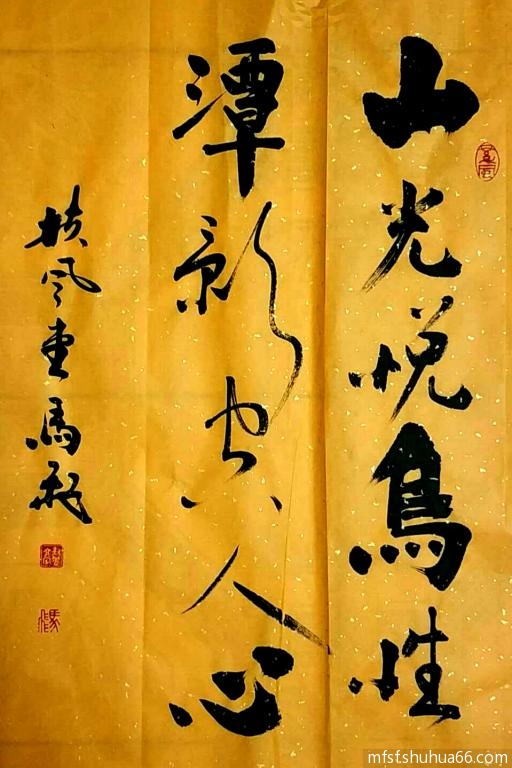 山光悦鳥性
潭影空人心
扶風堂馬
mfsfshuhua66.com